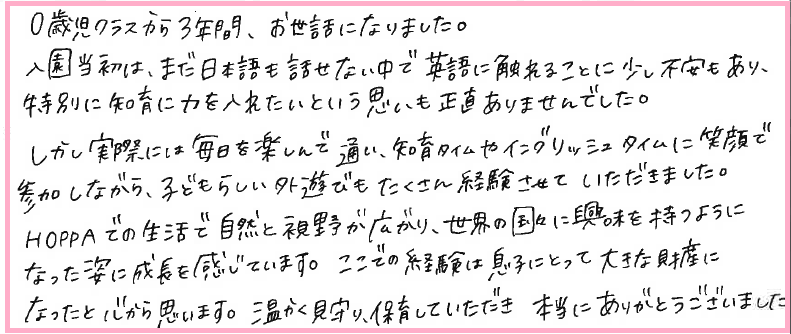 0歳児クラスから3年間、お世話になりました。
入園当初は、まだ日本語も話せない中で英語に触れることに少し不安もあり、
特別に知育に力を入れたいという思いも正直ありませんでした。
しかし実際には毎日を楽しんで通い、知育タイムやイングリッシュタイムに笑顔で
参加しながら、子どもらしい外遊びもたくさん経験させていただきました。
HOPPAでの生活で自然と視野が広がり、世界の国々に興味を持つように
なった姿に成長を感じています。ここでの経験は息子にとって大きな財産に
なったと心から思います。温かく見守り、保育していただき 本当にありがとうございました